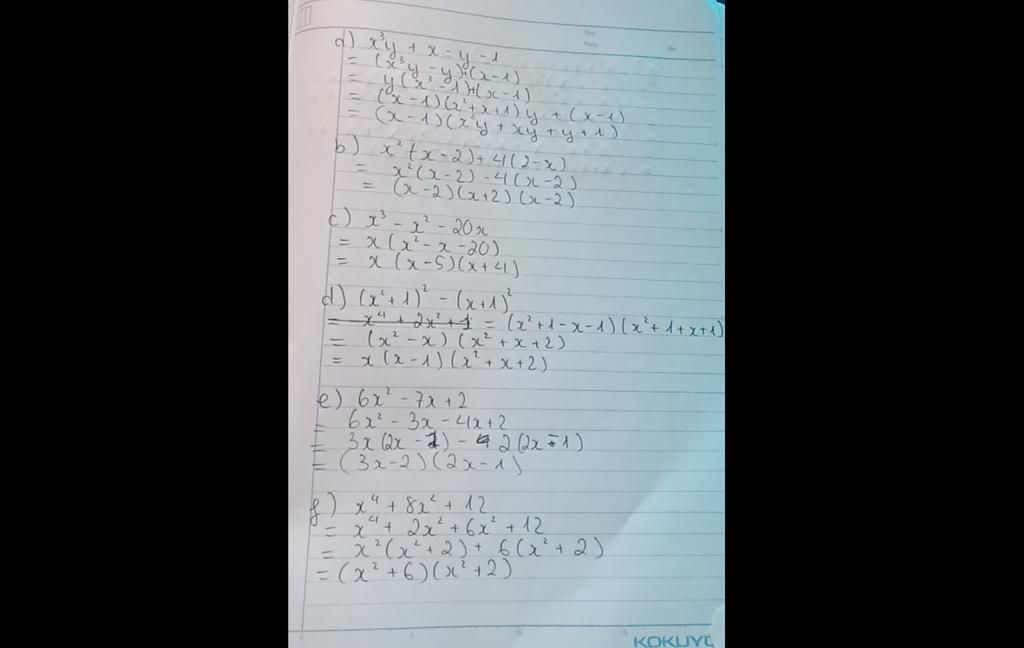 a) x³y + x - y - 1
= (x³y - y)+(x-1)
= y(x³-1)+(x-1)
= (x-1)(x²+x+1)y + (x-1)
= (x-1)(x²y + xy + y + 1)
b) x²(x-2)+4(2-x)
= x²(x-2)-4(x-2)
= (x-2)(x+2)(x-2)
c) x³ - x² - 20x
= x(x²-x-20)
= x(x-5)(x+4)
d) (x²+1)² - (x+1)²
= x⁴ + 2x² + 1 = (x²+1-x-1)(x²+1+x+1)
= (x²-x)(x²+x+2)
= x(x-1)(x²+x+2)
e) 6x² - 7x + 2
= 6x² - 3x - 4x + 2
= 3x(2x-1) - 2(2x-1)
= (3x-2)(2x-1)
f) x⁴ + 8x² + 12
= x⁴ + 2x² + 6x² + 12
= x²(x²+2) + 6(x²+2)
= (x²+6)(x²+2)